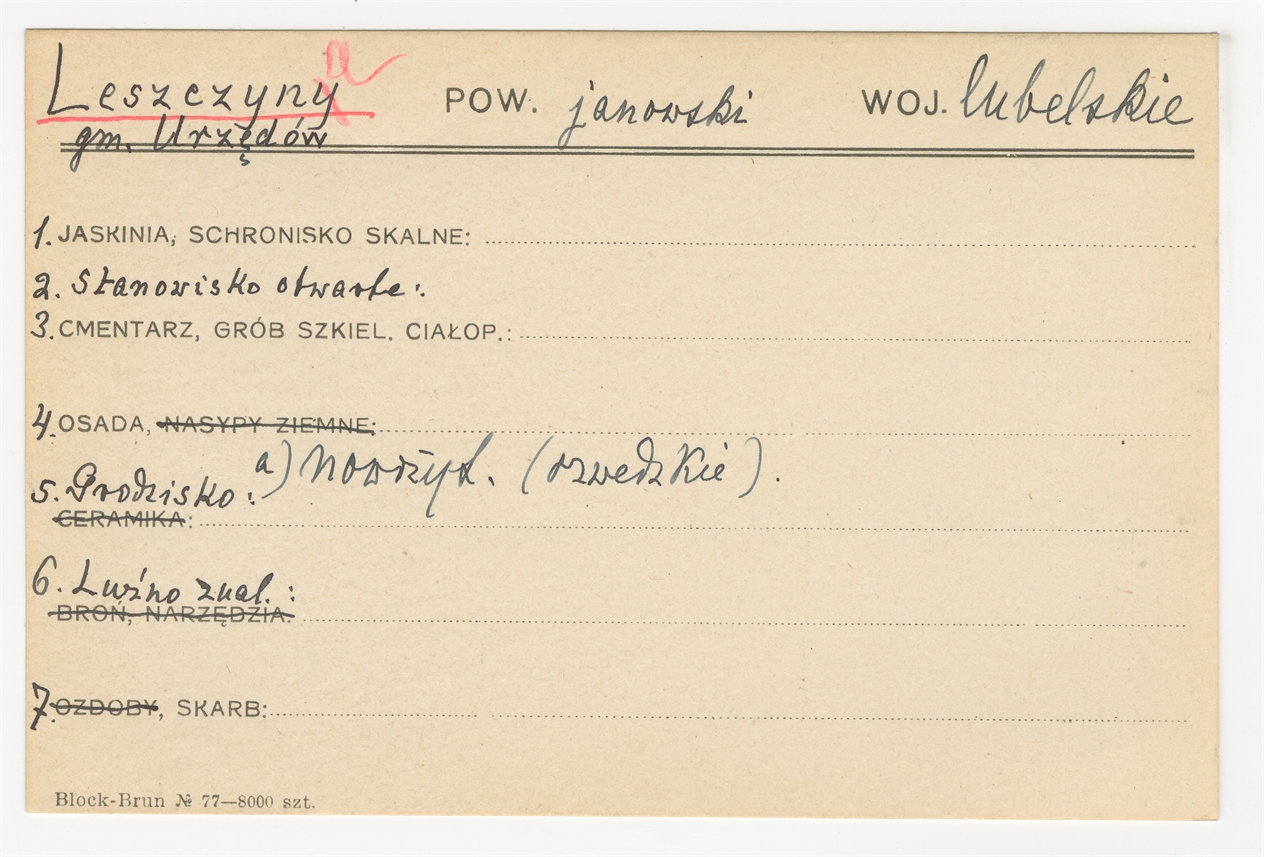 Leszczyny a POW. janowski WOJ. lubelskie
gm. Urzędów
1. JASKINIA, SCHRONISKO SKALNE:
2. Stanowisko otwarte:
3. CMENTARZ, GRÓB SZKIEL. CIAŁOP.:
4. OSADA, NASYPY ZIEMNE:
5. Grodzisko: a) nowożyt. (szwedzkie).
CERAMIKA:
6. Luźno znal.:
BROŃ, NARZĘDZIA:
7. OZDOBY, SKARB:
Block-Brun № 77—8000 szt.